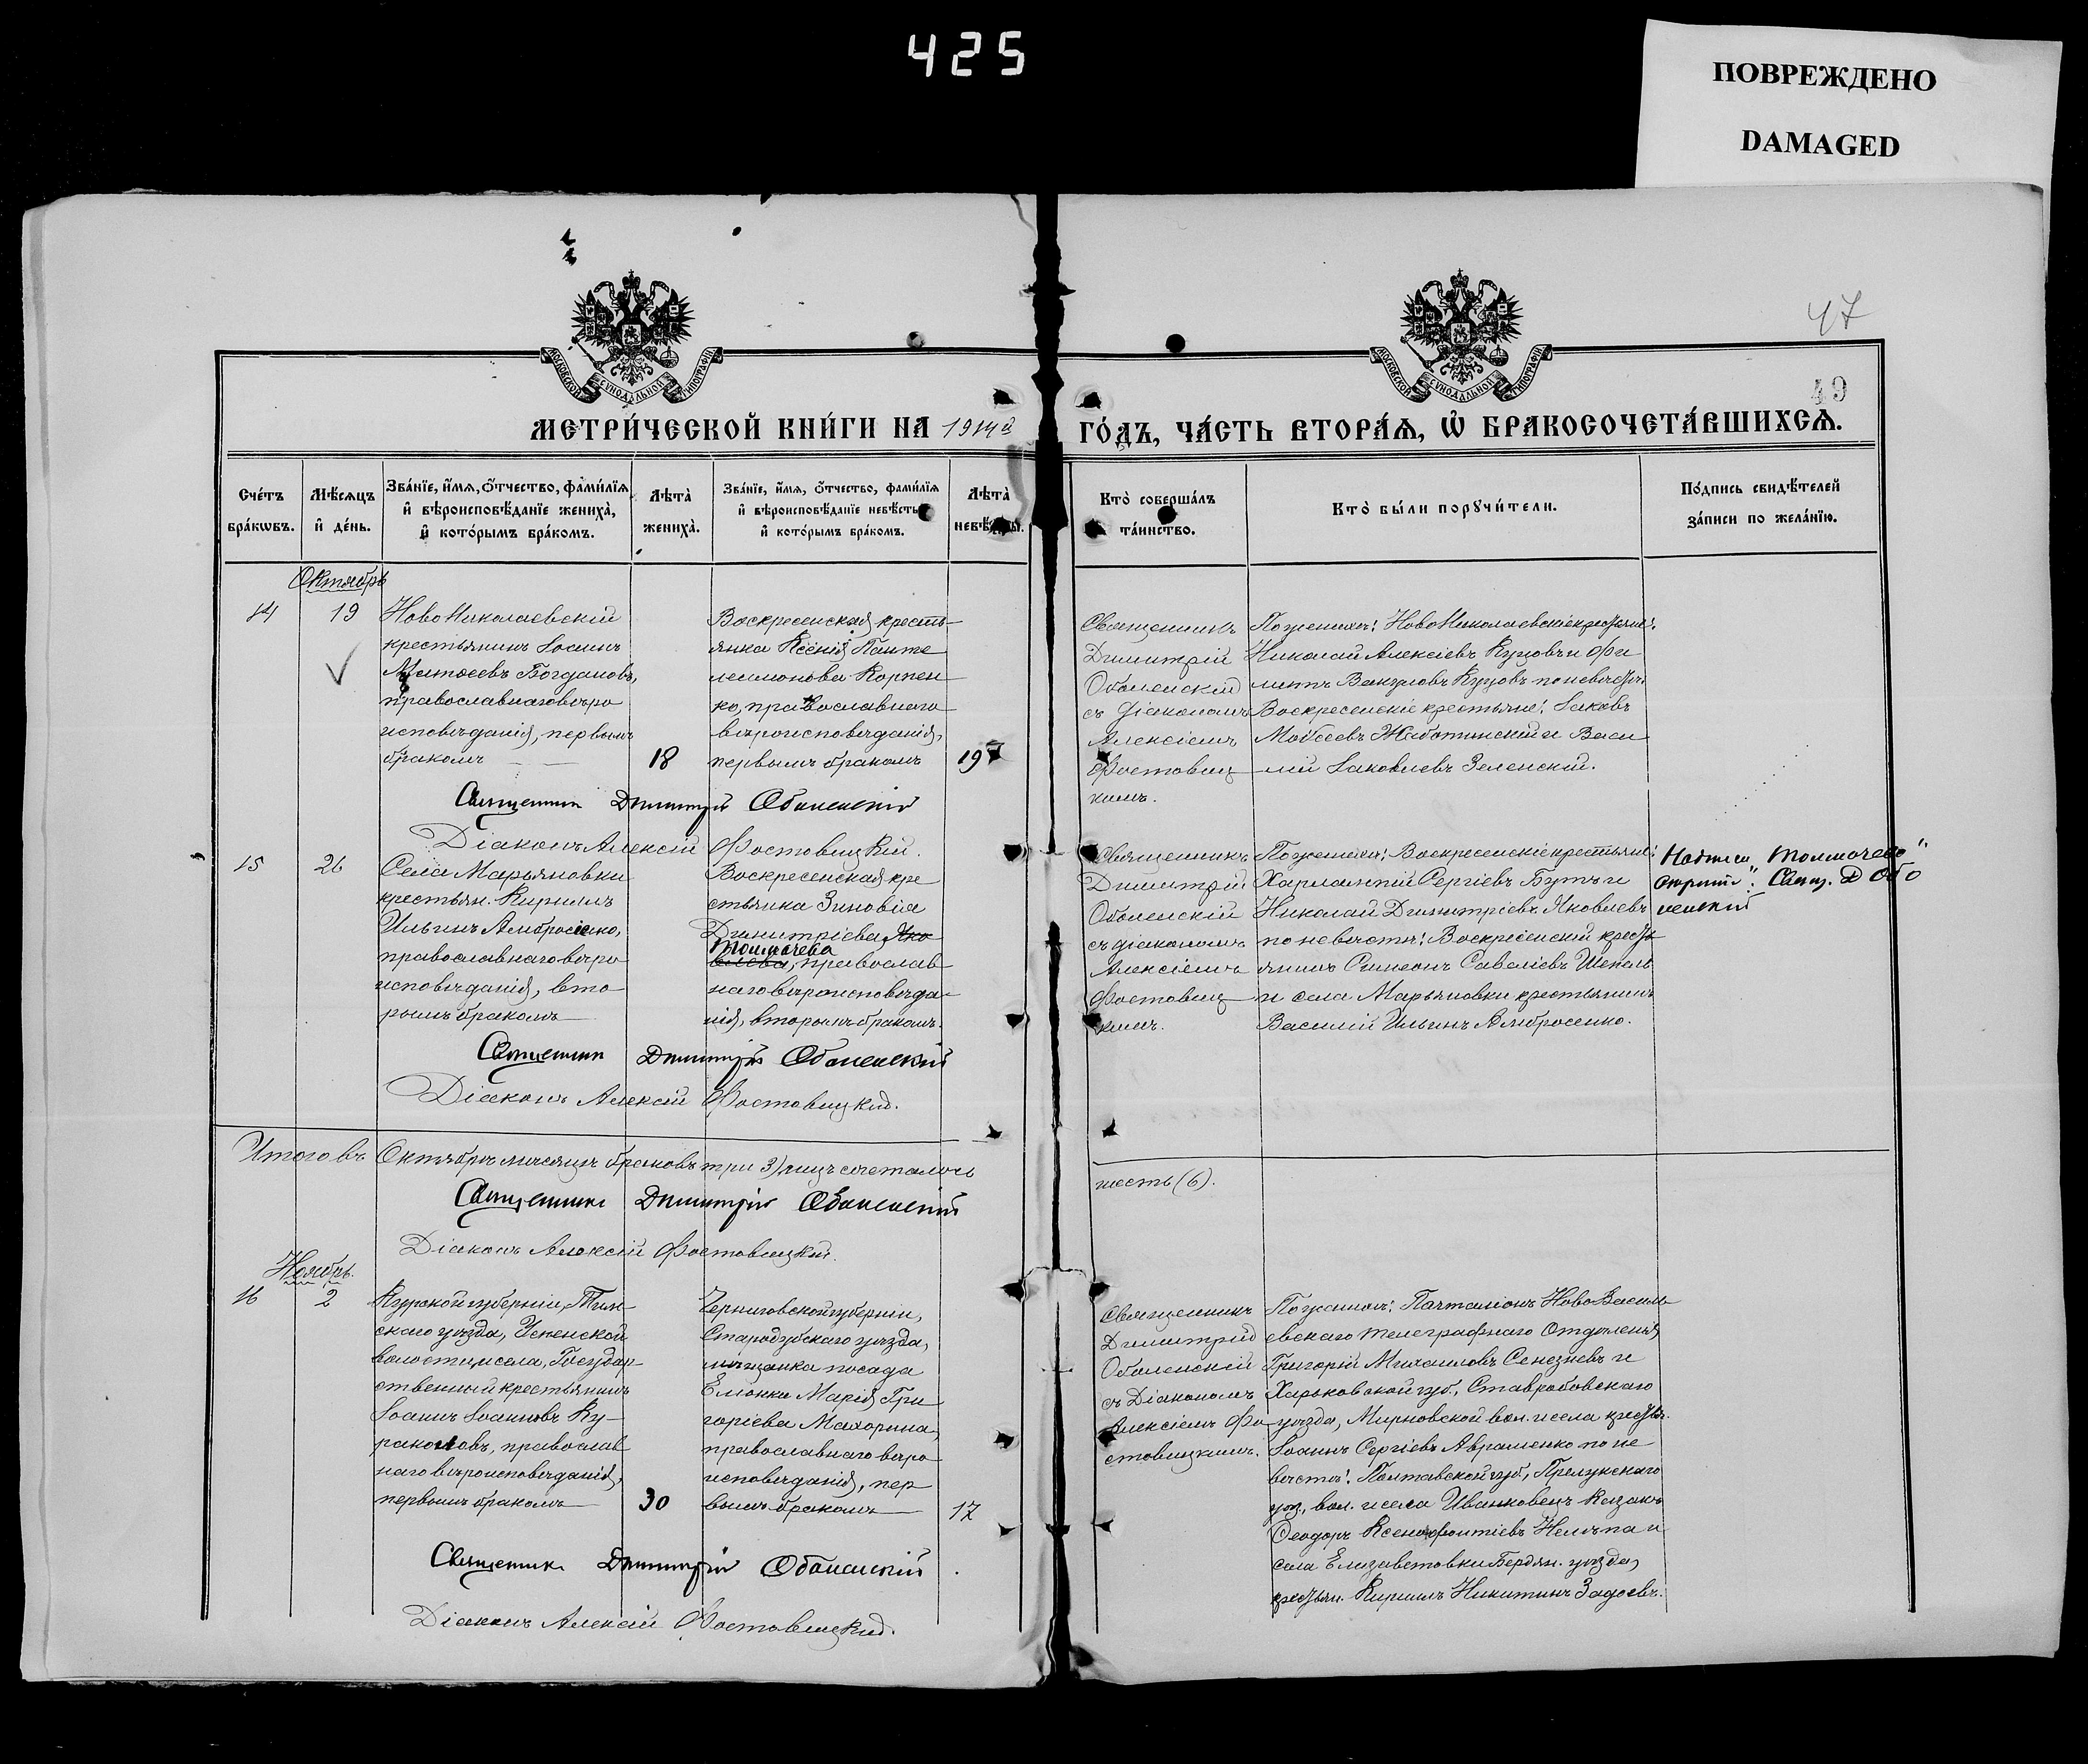 425
ПОВРЕЖДЕНО
DAMAGED
47
49
МОСКОВСКОЙ СѴНОДАЛЬНОЙ ТИПОГРАФІИ
МОСКОВСКОЙ СѴНОДАЛЬНОЙ ТИПОГРАФІИ
МЕТРИ́ЧЕСКОЙ КНИ́ГИ НА 1914й ГО́ДЪ, ЧА́СТЬ ВТОРА́Ѧ, Ѽ БРАКОСОЧЕТА́ВШИХСѦ.
Сче́тъ бра́кѡвъ.
Мѣ́сѧцъ и҆ де́нь.
Зва́нїе, и҆́мѧ, ѻ҆́тчество, фами́лїѧ и҆ вѣроисповѣ́данїе жениха̀, и҆ кото́рымъ бра́комъ.
Лѣта̀ жениха̀.
Зва́нїе, и҆́мѧ, ѻ҆́тчество, фами́лїѧ и҆ вѣроисповѣ́данїе невѣ́сты, и҆ кото́рымъ бра́комъ.
Лѣта̀ невѣ́сты.
Кто̀ соверша́лъ та́инство.
Кто̀ бы́ли порꙋчи́тели.
По́дпись свидѣ́телей за́писи по жела́нїю.
Октябрь
14
19
НовоНиколаевскій
крестьянинъ Іоаннъ
Матѳеевъ Богдановъ,
православнаго вѣро
исповѣданія, первымъ
бракомъ
18
Воскресенская кресть-
янка Ксенія Панте
леимонова Корпен
ко, православнаго
вѣроисповѣданія,
первымъ бракомъ
19
Священникъ
Димитрій
Оболенскій
съ діакономъ
Алексіемъ
Фостовиц
кимъ.
По женихѣ: НовоНиколаевскіе крестьяне:
Николай Алексіевъ Куцовъ и Фи
липпъ Вакуловъ Куцовъ по невѣстѣ:
Воскресенскіе крестьяне: Іаковъ
Моѵсеевъ Жаботинскій и Васи
лій Іаковлевъ Зеленскій.
Священникъ Димитрій Оболенскій
Діаконъ Алексій Фостовицкій.
15
26
Села Марьяновки
крестьян. Кириллъ
Ильинъ Амбросенко,
православнаго вѣро
исповѣданія, вто
рымъ бракомъ
Воскресенская кре
стьянка Зиновія
Димитріева Яко
Толмачева
влева, православ
наго вѣроисповѣда
нія, вторымъ бракомъ.
Священникъ
Димитрій
Оболенскій
съ діакономъ
Алексіемъ
Фостовиц
кимъ.
По женихѣ: Воскресенскіе крестьяне:
Харлампій Сергіевъ Бутъ и
Николай Димитріевъ Яковлевъ
по невѣстѣ: Воскресенскій крестъ
янинъ Симеонъ Савеліевъ Шепель
и села Марьяновки крестьянинъ
Василій Ильинъ Амбросенко.
"Толмачева"
Свящ. Д Обо
ленскій
Священникъ Димитрій Оболенскій
Діаконъ Алексій Фостовицкій.
Итого въ Октябрѣ мѣсяцѣ браковъ три 3) лицъ сочеталось
шесть (6).
Священникъ Димитрій Оболенскій
Діаконъ Алексій Фостовицкій.
Ноябрь.
16
2
Курской губерніи, Тим-
скаго уѣзда, Успенской
волости и села, Государ-
ственный крестьянинъ
Іоаннъ Іоанновъ Ку-
ракотовъ, православ
наго вѣроисповѣданія,
первымъ бракомъ
30
Черниговской губерніи,
Стародубскаго уѣзда,
мѣщанка посада
Елионки Марія Гри
горіева Махорина,
православнаго вѣро
исповѣданія, пер
вымъ бракомъ
17
Священникъ
Димитрій
Оболенскій
съ Діакономъ
Алексіемъ Фо
стовицкимъ.
По женихѣ: Почталіонъ НовоВасиль
евскаго телеграфнаго Отдѣленія
Григорій Михаиловъ Сенезневъ и
Харьковской губ., Старобовскаго
уѣзда, Мирновской вол. и села крестьян.
Іоаннъ Сергіевъ Авраменко по не
вѣстѣ: Полтавской губ, Прилукскаго
уѣз, вол. и села Иванковецъ Казакъ
Ѳеодоръ Ксенофонтіевъ Нелѣпа и
села Елизаветовки Бердян. уѣзда,
крестьян. Кириллъ Никитинъ Задоевъ.
Священникъ Димитрій Оболенскій
Діаконъ Алексій Фостовицкій.